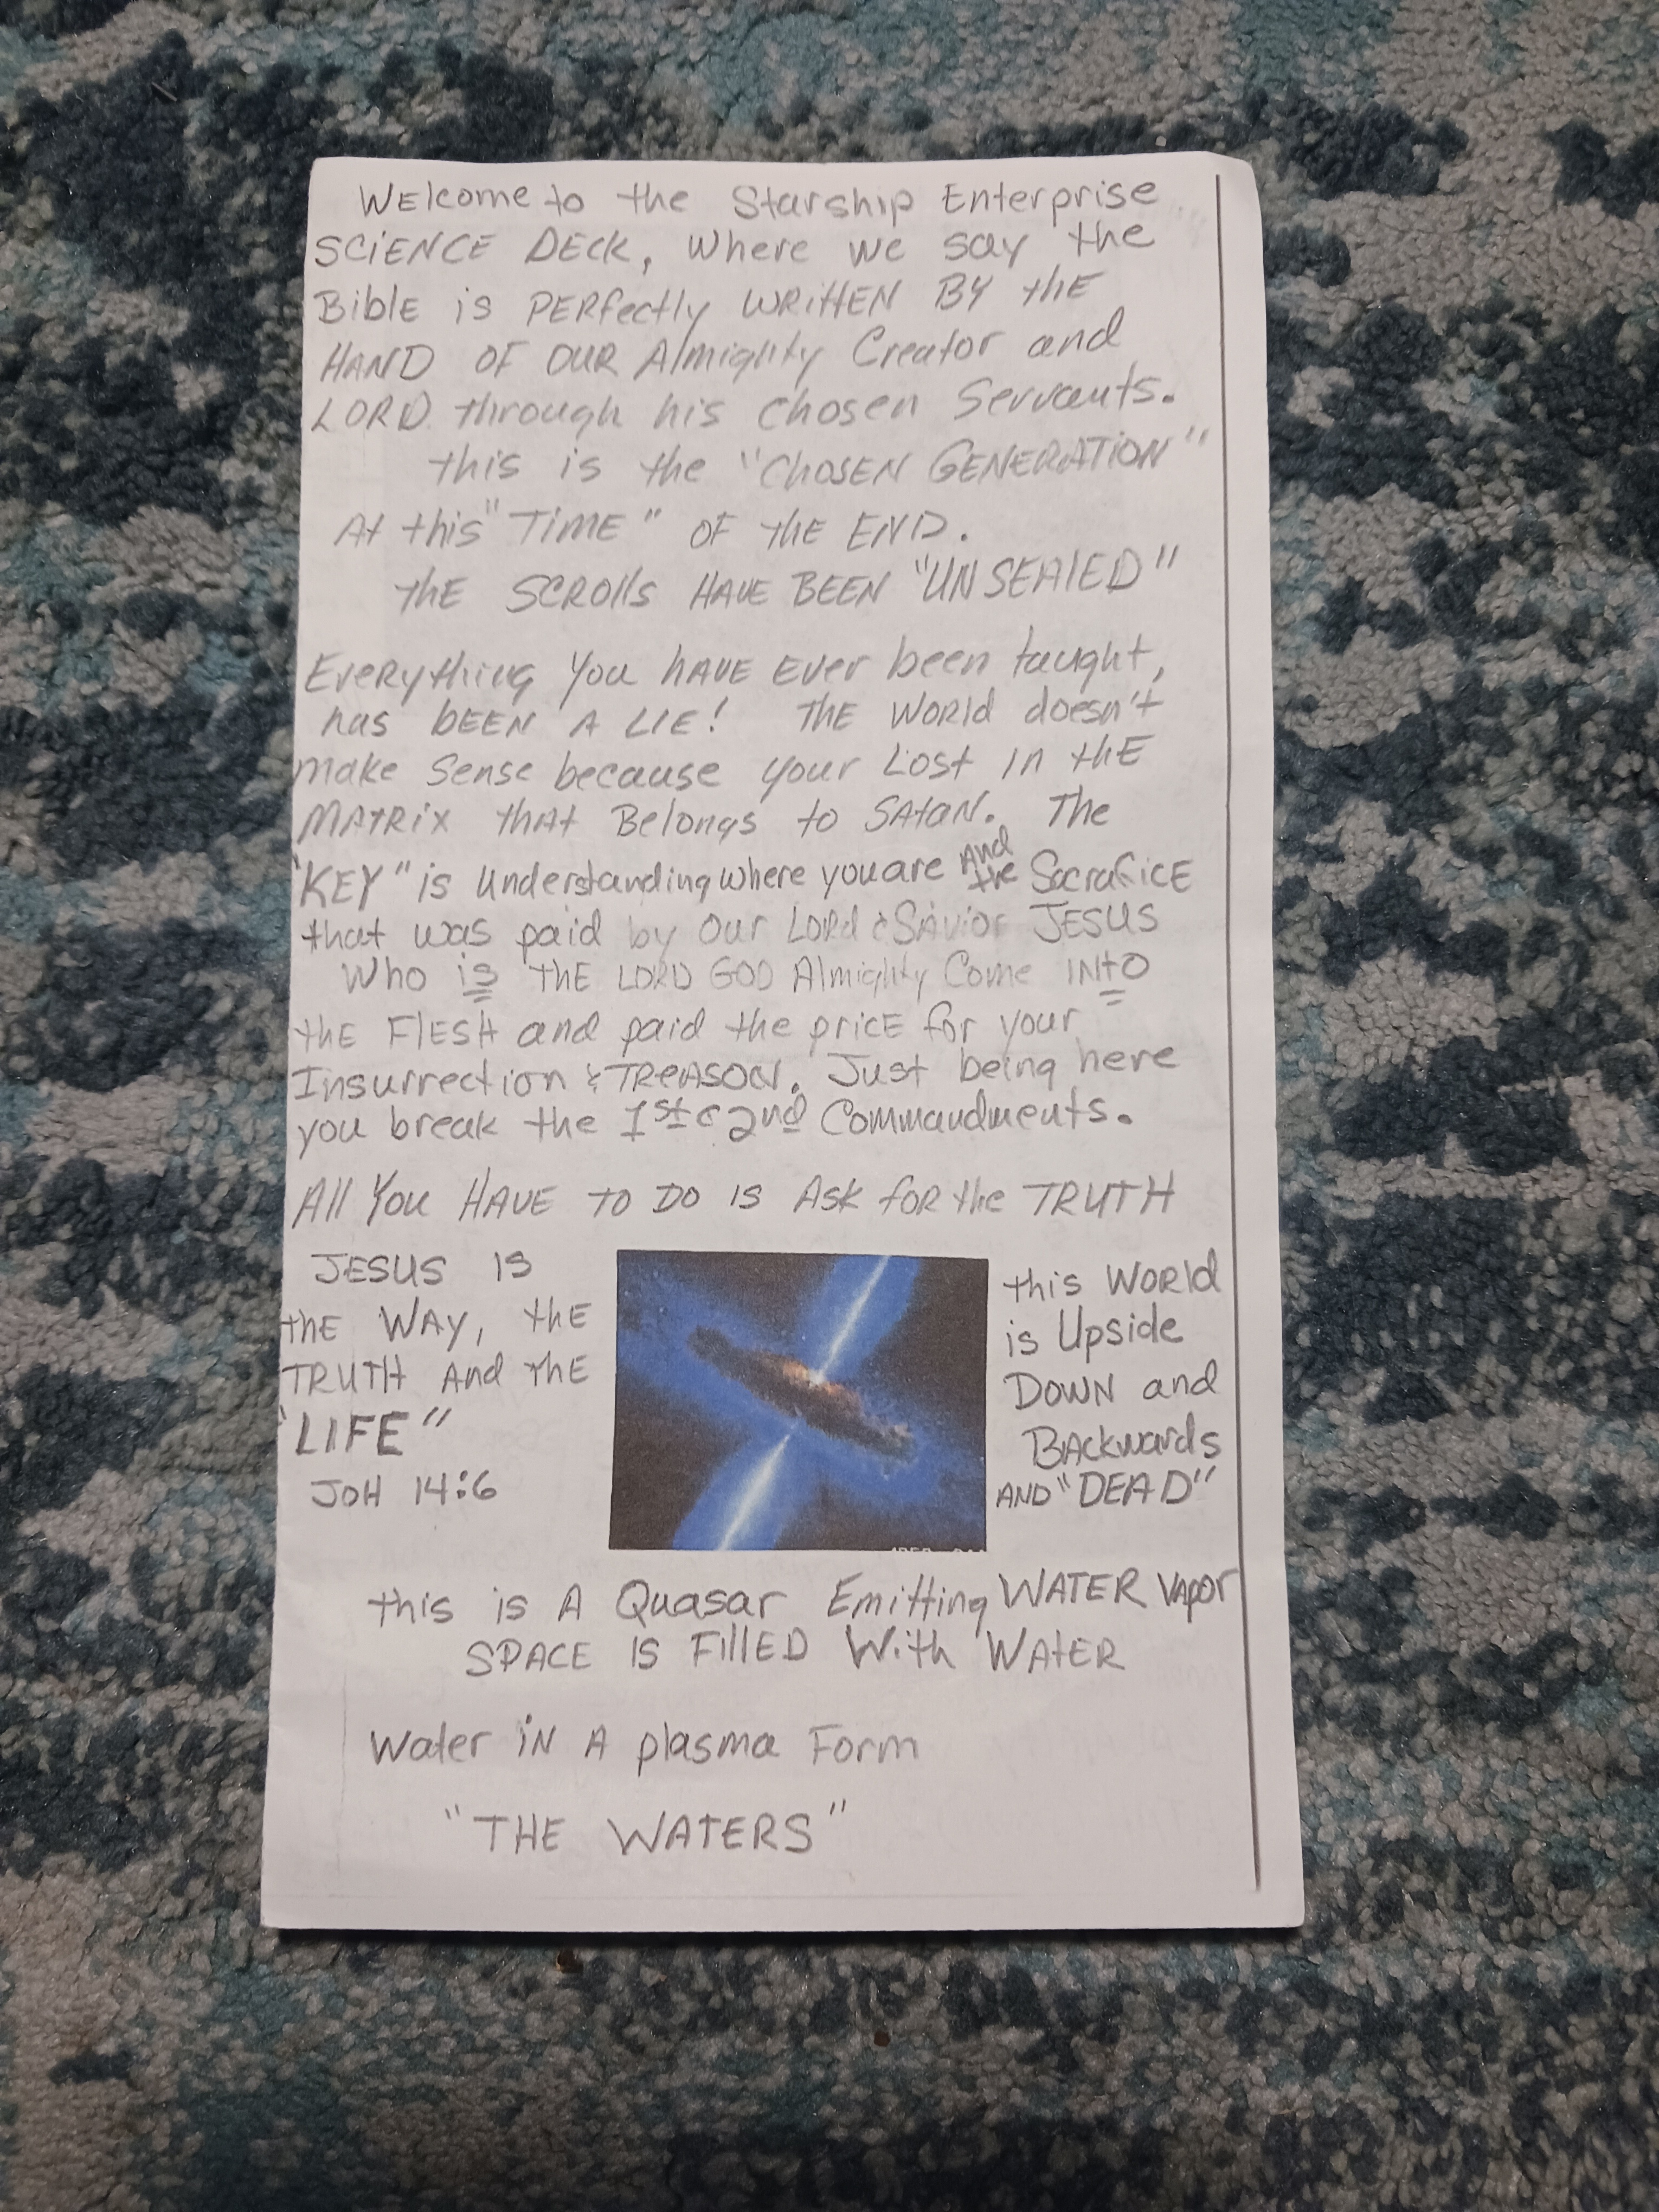 WElcome to the Starship Enterprise
SCiENCE DECK, Where we say the
BiblE is PERfectly WRittEN BY thE
HAND OF OUR Almighty Creator and
LORD through his chosen Servants.
this is the "ChOSEN GENERATiON"
At this "TiME" OF thE END.
thE SCROlls HAVE BEEN "UNSEAlED"
EveRything You hAVE EVer been taught,
has bEEN A LIE! ThE WORld doesn't
Make Sense because your Lost in thE
MATRiX thAt Belongs to SAtaN. The
"KEY" is Understanding where you are And the SacrafiCE
that was paid by Our LORd & SAvior JESUS
Who is ThE LORD GOD Almighty Come INtO
thE FlESH and paid the pricE for your
Insurrection & TREASON. Just being here
you break the 1st & 2nd Commandments.
All YOU HAVE TO DO is Ask foR the TRUTH
JESUS IS
thE WAY, thE
TRUTH And thE
"LIFE"
JOH 14:6
this WORld
is Upside
DOWN and
BAckwards
AND "DEAD"
this is A Quasar Emitting WATER VApor
SPACE IS FillED With WAtER
Water iN A plasma Form
"THE WATERS"